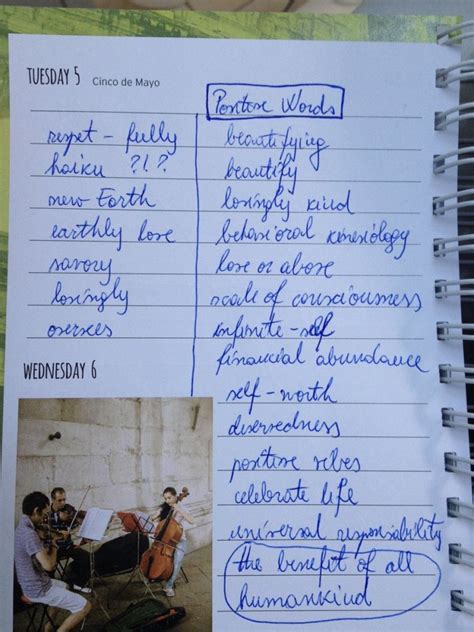 TUESDAY 5 Cinco de Mayo
respet - fully
haiku ?!?
new Earth
earthly love
savory
lovingly
WEDNESDAY 6
Positive Words
beautifying
beautify
lovingly kind
behavioral kinesiology
love or above
scale of consciousness
infinite-self
financial abundance
self-worth
deservedness
positive vibes
celebrate life
universal responsability
the benefit of all
humankind